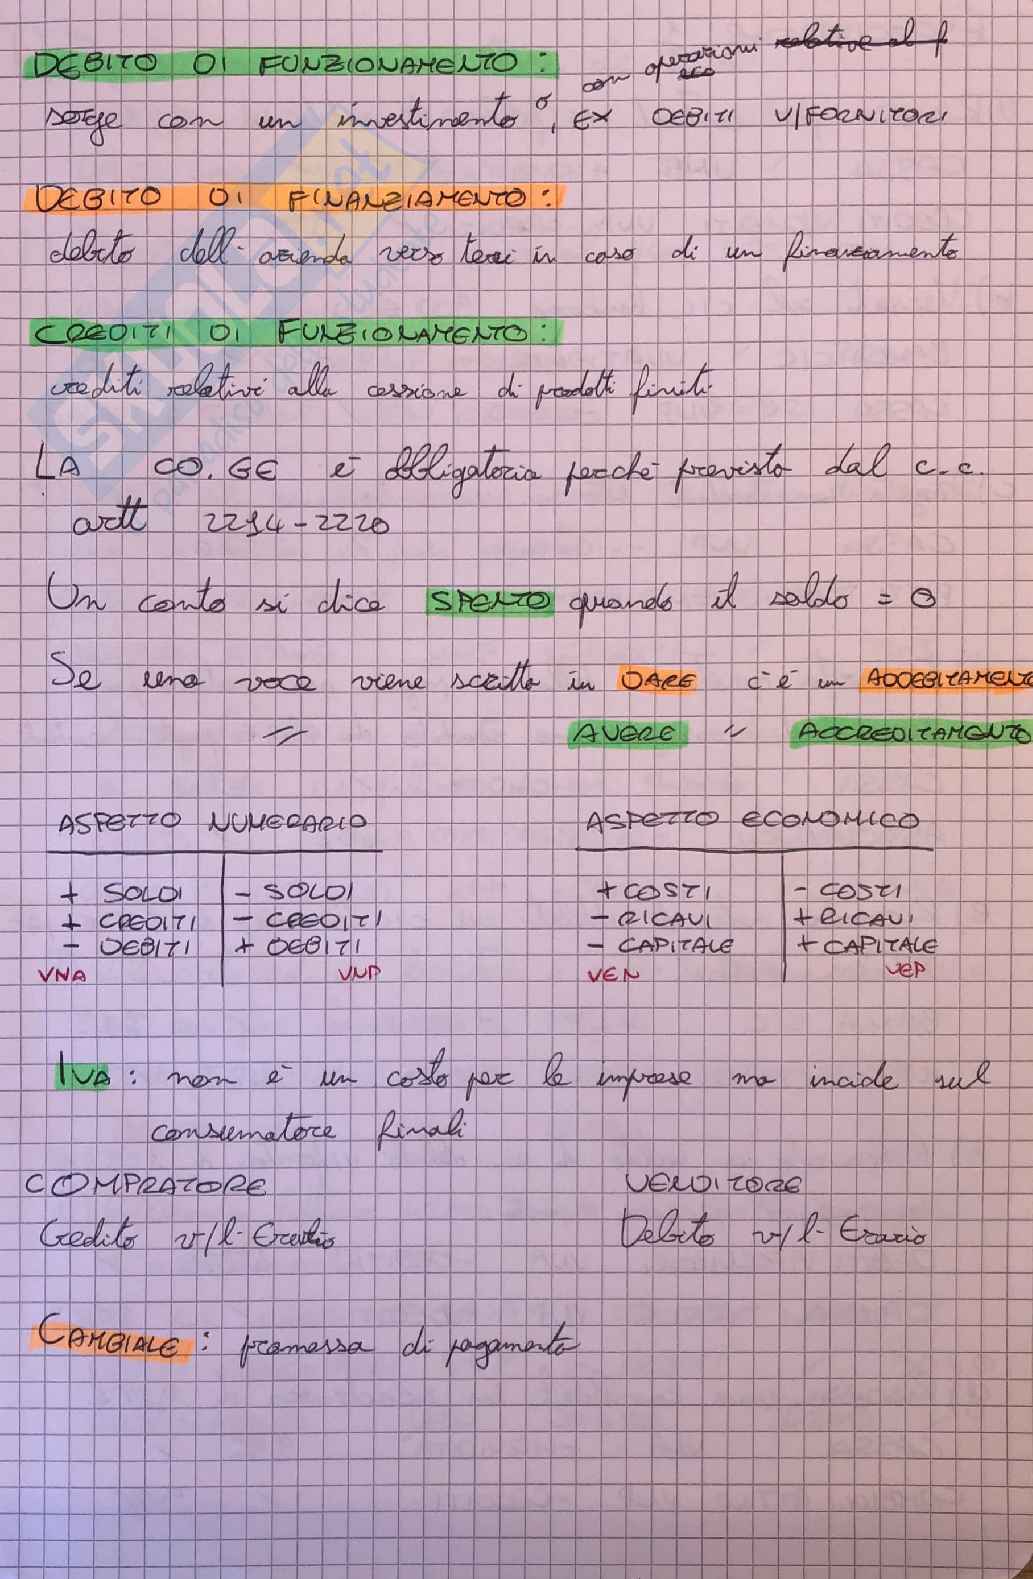 DEBITO DI FUNZIONAMENTO :
con operazioni relative al f
eco
sorge con un investimento o, EX DEBITI V/FORNITORI
DEBITO DI FINANZIAMENTO :
debito dell'azienda verso terzi in caso di un finanziamento
CREDITI DI FUNZIONAMENTO :
crediti relativi alla cessione di prodotti finiti
LA CO.GE è obbligatoria perché previsto dal c.c.
artt 2214-2220
Un conto si dice SPENTO quando il saldo = 0
Se una voce viene scritta in DARE c'è un ADDEBITAMENTO
〃 AVERE 〃 ACCREDITAMENTO
ASPETTO NUMERARIO ASPETTO ECONOMICO
+ SOLDI - SOLDI + COSTI - COSTI
+ CREDITI - CREDITI - RICAVI + RICAVI
- DEBITI + DEBITI - CAPITALE + CAPITALE
VNA VNP VEN VEP
IVA : non è un costo per le imprese ma incide sul
consumatore finali
COMPRATORE VENDITORE
Credito v/l'Erario Debito v/l'Erario
CAMBIALE : promessa di pagamento